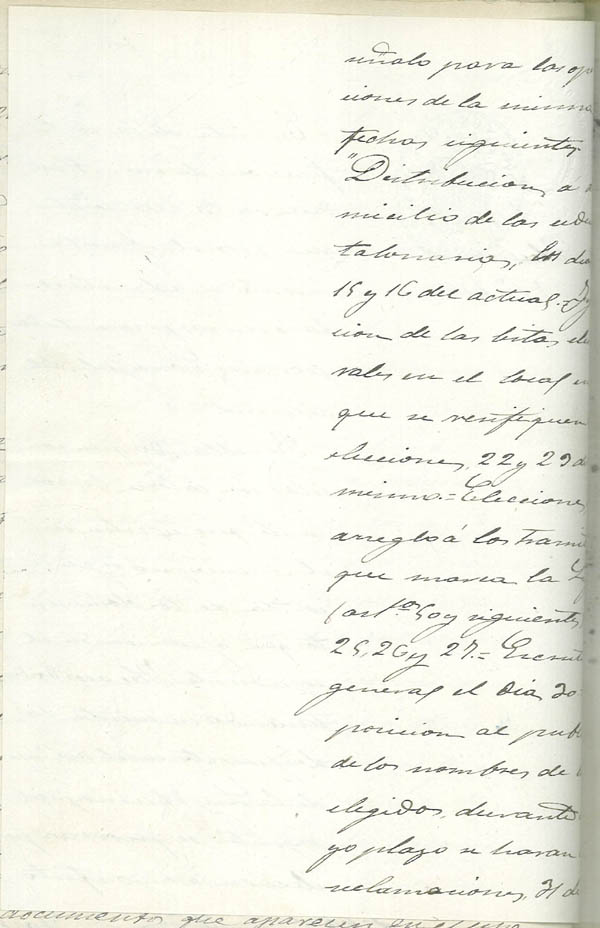 señalo para las op
ciones de la misma
fechas siguientes.
"Distribucion á
micilio de las cedu
talonarias, los dias
15 y 16 del actual.=
cion de las listas elec
rales en el local en
que se verifiquen
elecciones, 22 y 23 d
mismo.= Elecciones
arreglo á los trami
que marca la Ley
(artº. 50 y siguientes
25, 26 y 27.= Escruti
general el dia 30
posicion al publi
de los nombres de
elegidos, durante
yo plazo se haran
reclamaciones, 31 de
documento que aparecen en el